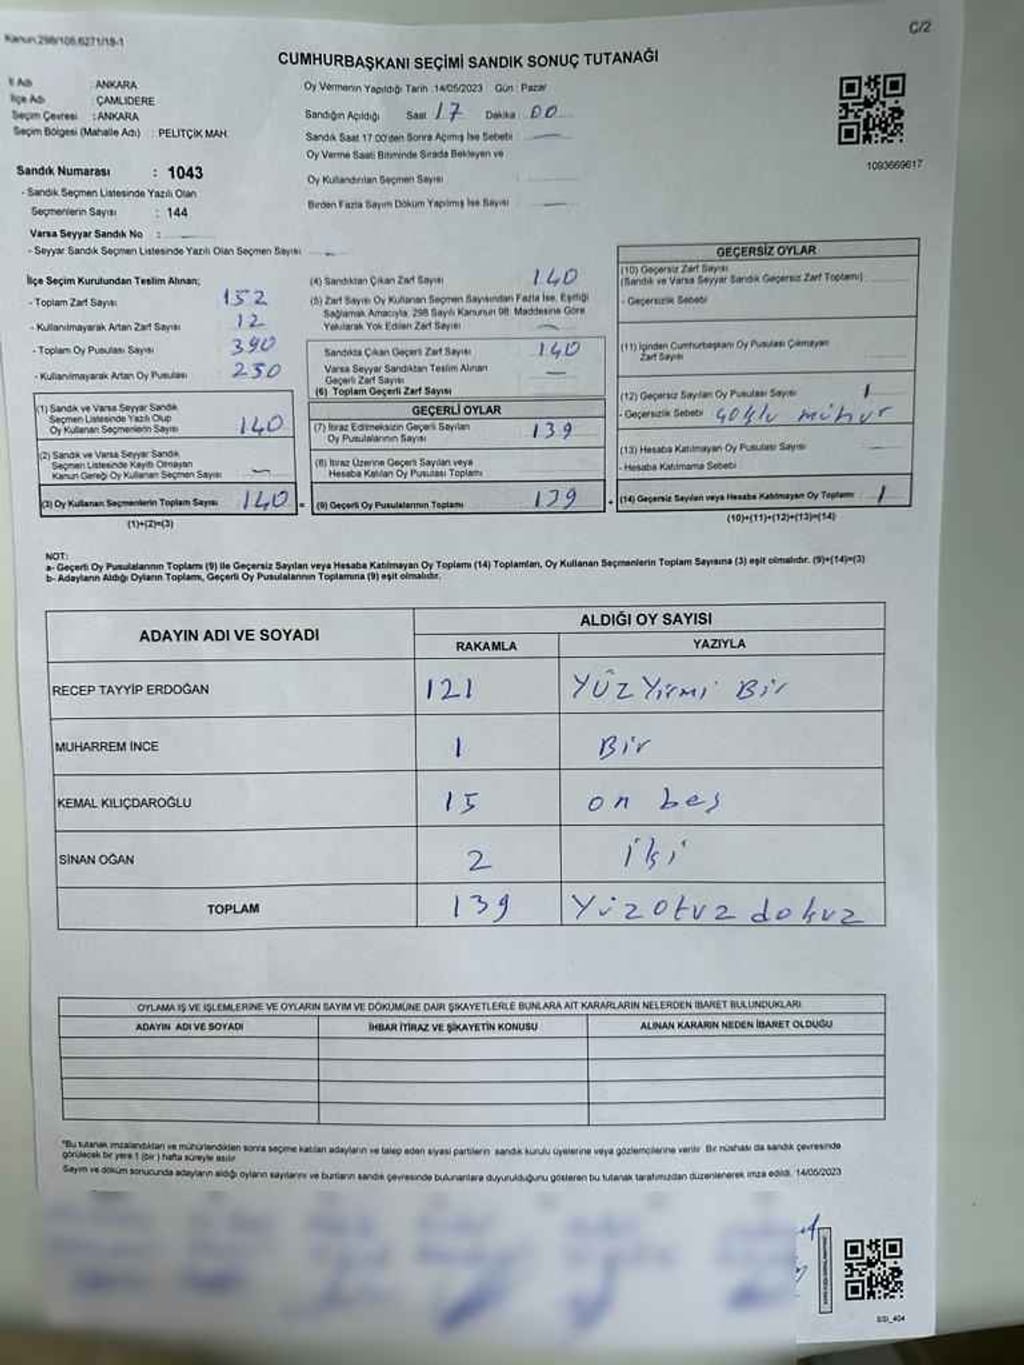 Kanun 298/108.6271/18-1
C/2
CUMHURBAŞKANI SEÇİMİ SANDIK SONUÇ TUTANAĞI
İl Adı : ANKARA
İlçe Adı : ÇAMLIDERE
Seçim Çevresi : ANKARA
Seçim Bölgesi (Mahalle Adı) : PELİTÇİK MAH.
Sandık Numarası : 1043
- Sandık Seçmen Listesinde Yazılı Olan
Seçmenlerin Sayısı : 144
Varsa Seyyar Sandık No :
- Seyyar Sandık Seçmen Listesinde Yazılı Olan Seçmen Sayısı :
Oy Vermenin Yapıldığı Tarih :14/05/2023 Gün : Pazar
Sandığın Açıldığı Saat 17 Dakika : 00
Sandık Saat 17.00'den Sonra Açılmış İse Sebebi :
Oy Verme Saati Bitiminde Sırada Bekleyen ve
Oy Kullandırılan Seçmen Sayısı :
Birden Fazla Sayım Döküm Yapılmış İse Sayısı :
1093669617
İlçe Seçim Kurulundan Teslim Alınan;
- Toplam Zarf Sayısı 152
- Kullanılmayarak Artan Zarf Sayısı 12
- Toplam Oy Pusulası Sayısı 390
- Kullanılmayarak Artan Oy Pusulası 250
(1) Sandık ve Varsa Seyyar Sandık
Seçmen Listesinde Yazılı Olup
Oy Kullanan Seçmenlerin Sayısı 140
(2) Sandık ve Varsa Seyyar Sandık
Seçmen Listesinde Kayıtlı Olmayan
Kanun Gereği Oy Kullanan Seçmen Sayısı
(3) Oy Kullanan Seçmenlerin Toplam Sayısı 140 =
(1)+(2)=(3)
(4) Sandıktan Çıkan Zarf Sayısı 140
(5) Zarf Sayısı Oy Kullanan Seçmen Sayısından Fazla İse, Eşitliği
Sağlamak Amacıyla, 298 Sayılı Kanunun 98. Maddesine Göre
Yakılarak Yok Edilen Zarf Sayısı
Sandıkta Çıkan Geçerli Zarf Sayısı 140
Varsa Seyyar Sandıktan Teslim Alınan
Geçerli Zarf Sayısı
(6) Toplam Geçerli Zarf Sayısı
GEÇERLİ OYLAR
(7) İtiraz Edilmeksizin Geçerli Sayılan
Oy Pusulalarının Sayısı 139
(8) İtiraz Üzerine Geçerli Sayılan veya
Hesaba Katılan Oy Pusulası Toplamı
(9) Geçerli Oy Pusulalarının Toplamı 139 +
GEÇERSİZ OYLAR
(10) Geçersiz Zarf Sayısı
(Sandık ve Varsa Seyyar Sandık Geçersiz Zarf Toplamı)
- Geçersizlik Sebebi
(11) İçinden Cumhurbaşkanı Oy Pusulası Çıkmayan
Zarf Sayısı
(12) Geçersiz Sayılan Oy Pusulası Sayısı 1
- Geçersizlik Sebebi mühür
(13) Hesaba Katılmayan Oy Pusulası Sayısı
- Hesaba Katılmama Sebebi
(14) Geçersiz Sayılan veya Hesaba Katılmayan Oy Toplamı 1
(10)+(11)+(12)+(13)=(14)
NOT:
a- Geçerli Oy Pusulalarının Toplamı (9) ile Geçersiz Sayılan veya Hesaba Katılmayan Oy Toplamı (14) Toplamları, Oy Kullanan Seçmenlerin Toplam Sayısına (3) eşit olmalıdır. (9)+(14)=(3)
b- Adayların Aldığı Oyların Toplamı, Geçerli Oy Pusulalarının Toplamına (9) eşit olmalıdır.
ADAYIN ADI VE SOYADI
ALDIĞI OY SAYISI
RAKAMLA YAZIYLA
RECEP TAYYİP ERDOĞAN 121 YÜZ Yirmi Bir
MUHARREM İNCE 1 Bir
KEMAL KILIÇDAROĞLU 15 on beş
SİNAN OĞAN 2 iki
TOPLAM 139 Yüz otuz dokuz
OYLAMA İŞ VE İŞLEMLERİNE VE OYLARIN SAYIM VE DÖKÜMÜNE DAİR ŞİKAYETLERLE BUNLARA AİT KARARLARIN NELERDEN İBARET BULUNDUKLARI
ADAYIN ADI VE SOYADI İHBAR İTİRAZ VE ŞİKAYETİN KONUSU ALINAN KARARIN NEDEN İBARET OLDUĞU
*Bu tutanak imzalandıktan ve mühürlendikten sonra seçime katılan adayların ve talep eden siyasi partilerin sandık kurulu üyelerine veya gözlemcilerine verilir. Bir nüshası da sandık çevresinde
görülecek bir yere 1 (bir) hafta süreyle asılır.
Sayım ve döküm sonucunda adayların aldığı oyların sayılarını ve bunların sandık çevresinde bulunanlara duyurulduğunu gösteren bu tutanak tarafımızdan düzenlenerek imza edildi. 14/05/2023